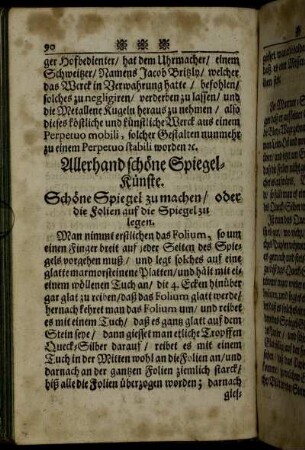 90
ger Hofbedienter / hat dem Uhrmacher / einem
Schweitzer / Namens Jacob Britzly / welcher
das Werck in Verwahrung hatte / befohlen /
solches zu negligiren / verderben zu lassen / und
die Metallene Kugeln heraus zu nehmen / also
dieses köstliche und künstliche Werck aus einem
Perpetuo mobili, solcher Gestalten nunmehr
zu einem Perpetuo stabili worden ꝛc.
Allerhand schöne Spiegel-
Künste.
Schöne Spiegel zu machen / oder
die Folien auf die Spiegel zu
legen.
Man nimmt erstlichen das Folium, so um
einen Finger breit auf jeder Seiten des Spie-
gels vorgehen muß / und legt solches auf eine
glatte marmorsteinerne Platten / und hält mit ei-
einem wöllenen Tuch an / die 4. Ecken hinüber
gar glat zu reiben / daß das Folium glatt werde /
hernach kehret man das Folium um / und reibet
es mit einem Tuch / daß es gantz glatt auf dem
Stein seye / dann giesset man etliche Tropffen
Queck-Silber darauf / reibet es mit einem
Tuch in der Mitten wohl an die Folien an / und
darnach an der gantzen Folien ziemlich starck /
biß alle die Folien überzogen worden; darnach
gies-